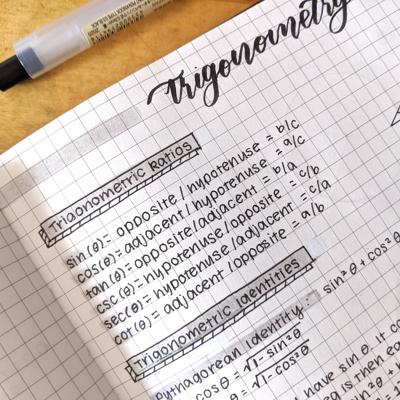 Trigonometry
Trigonometric Ratios
sin(θ) = opposite/hypotenuse = b/c
cos(θ) = adjacent/hypotenuse = a/c
tan(θ) = opposite/adjacent = b/a
csc(θ) = hypotenuse/opposite = c/b
sec(θ) = hypotenuse/adjacent = c/a
cot(θ) = adjacent/opposite = a/b
Trigonometric Identities
Pythagorean Identity: sin²θ + cos²θ
cosθ = √1-sin²θ
θ = √1-cos²θ
have sinθ. it co
is then ea